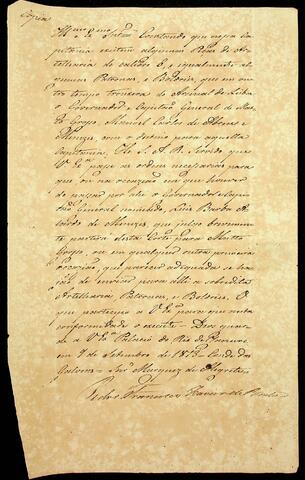 Copia
Illmo. e Exmo. Senr. Constando que nessa Ca-
pitania existem algumas Peças de Ar-
telharia de calibre 3, e igualmente al-
gumas Patronas, e Boldriés, que em ou-
tro tempo trouxera do Arsenal de Lisboa
o Governador, e Capitão General de Mat-
to Grosso, Manoel Carlos de Abreu e
Menezes, com o destino para aquella
Capitania; He S. A. R. Servido que
V. Exa. passe as ordens necessarias para
que ou na occazião em que houver
de passar por ahi o Governador e Capi-
tão General nomeado, Luiz Barba Al-
lardo de Menezes, que julgo brevemen-
te partirá desta Corte para Matto
Grosso, ou em qualquer outra primeira
occazião, que parecer adequada se ha-
jão de enviar para alli a sobredita
Artelharia, Patronas, e Boldriés. O
que participo a V. Exa. para que nesta
conformidade o execute. Deos guar-
de a V. Exa. Palacio do Rio de Janeiro
em 9 de Setembro de 1812. Conde das
Galveas = Snr. Marquez de Alegrete
Pedro Francisco Xavier de